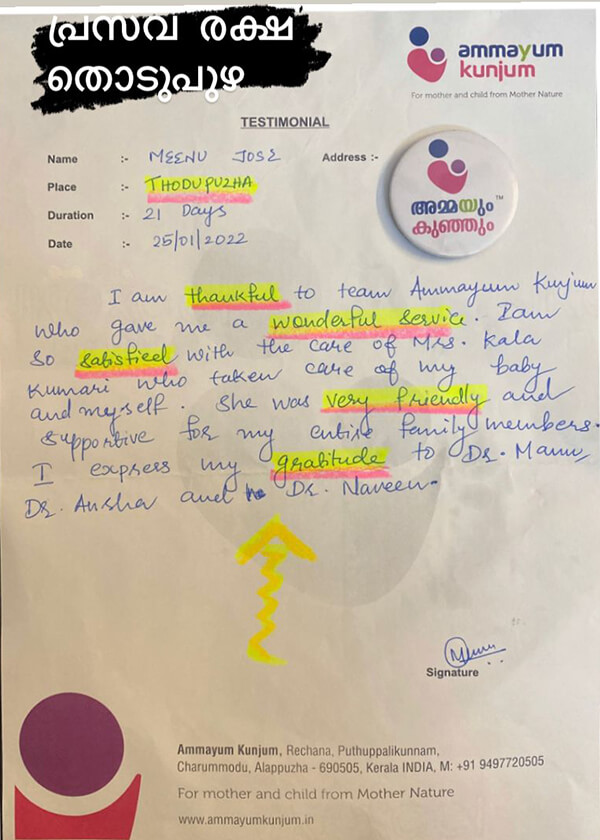 പ്രസവ രക്ഷ
തൊടുപുഴ
ammayum
kunjum
For mother and child from Mother Nature
TESTIMONIAL
Name :- MEENU JOSE Address :-
Place :- THODUPUZHA
Duration :- 21 Days
Date :- 25/01/2022
അമ്മയും TM
കുഞ്ഞും
I am thankful to team Ammayum Kunjum
who gave me a wonderful service. I am
so satisfied with the care of Mrs. Kala
Kumari who taken care of my baby
and myself. She was very friendly and
supportive for my entire family members.
I express my gratitude to Dr. Manu,
Dr. Ansha and Dr. Naveen.
Signature
Ammayum Kunjum, Rechana, Puthuppalikunnam,
Charummodu, Alappuzha - 690505, Kerala INDIA, M: +91 9497720505
For mother and child from Mother Nature
www.ammayumkunjum.in